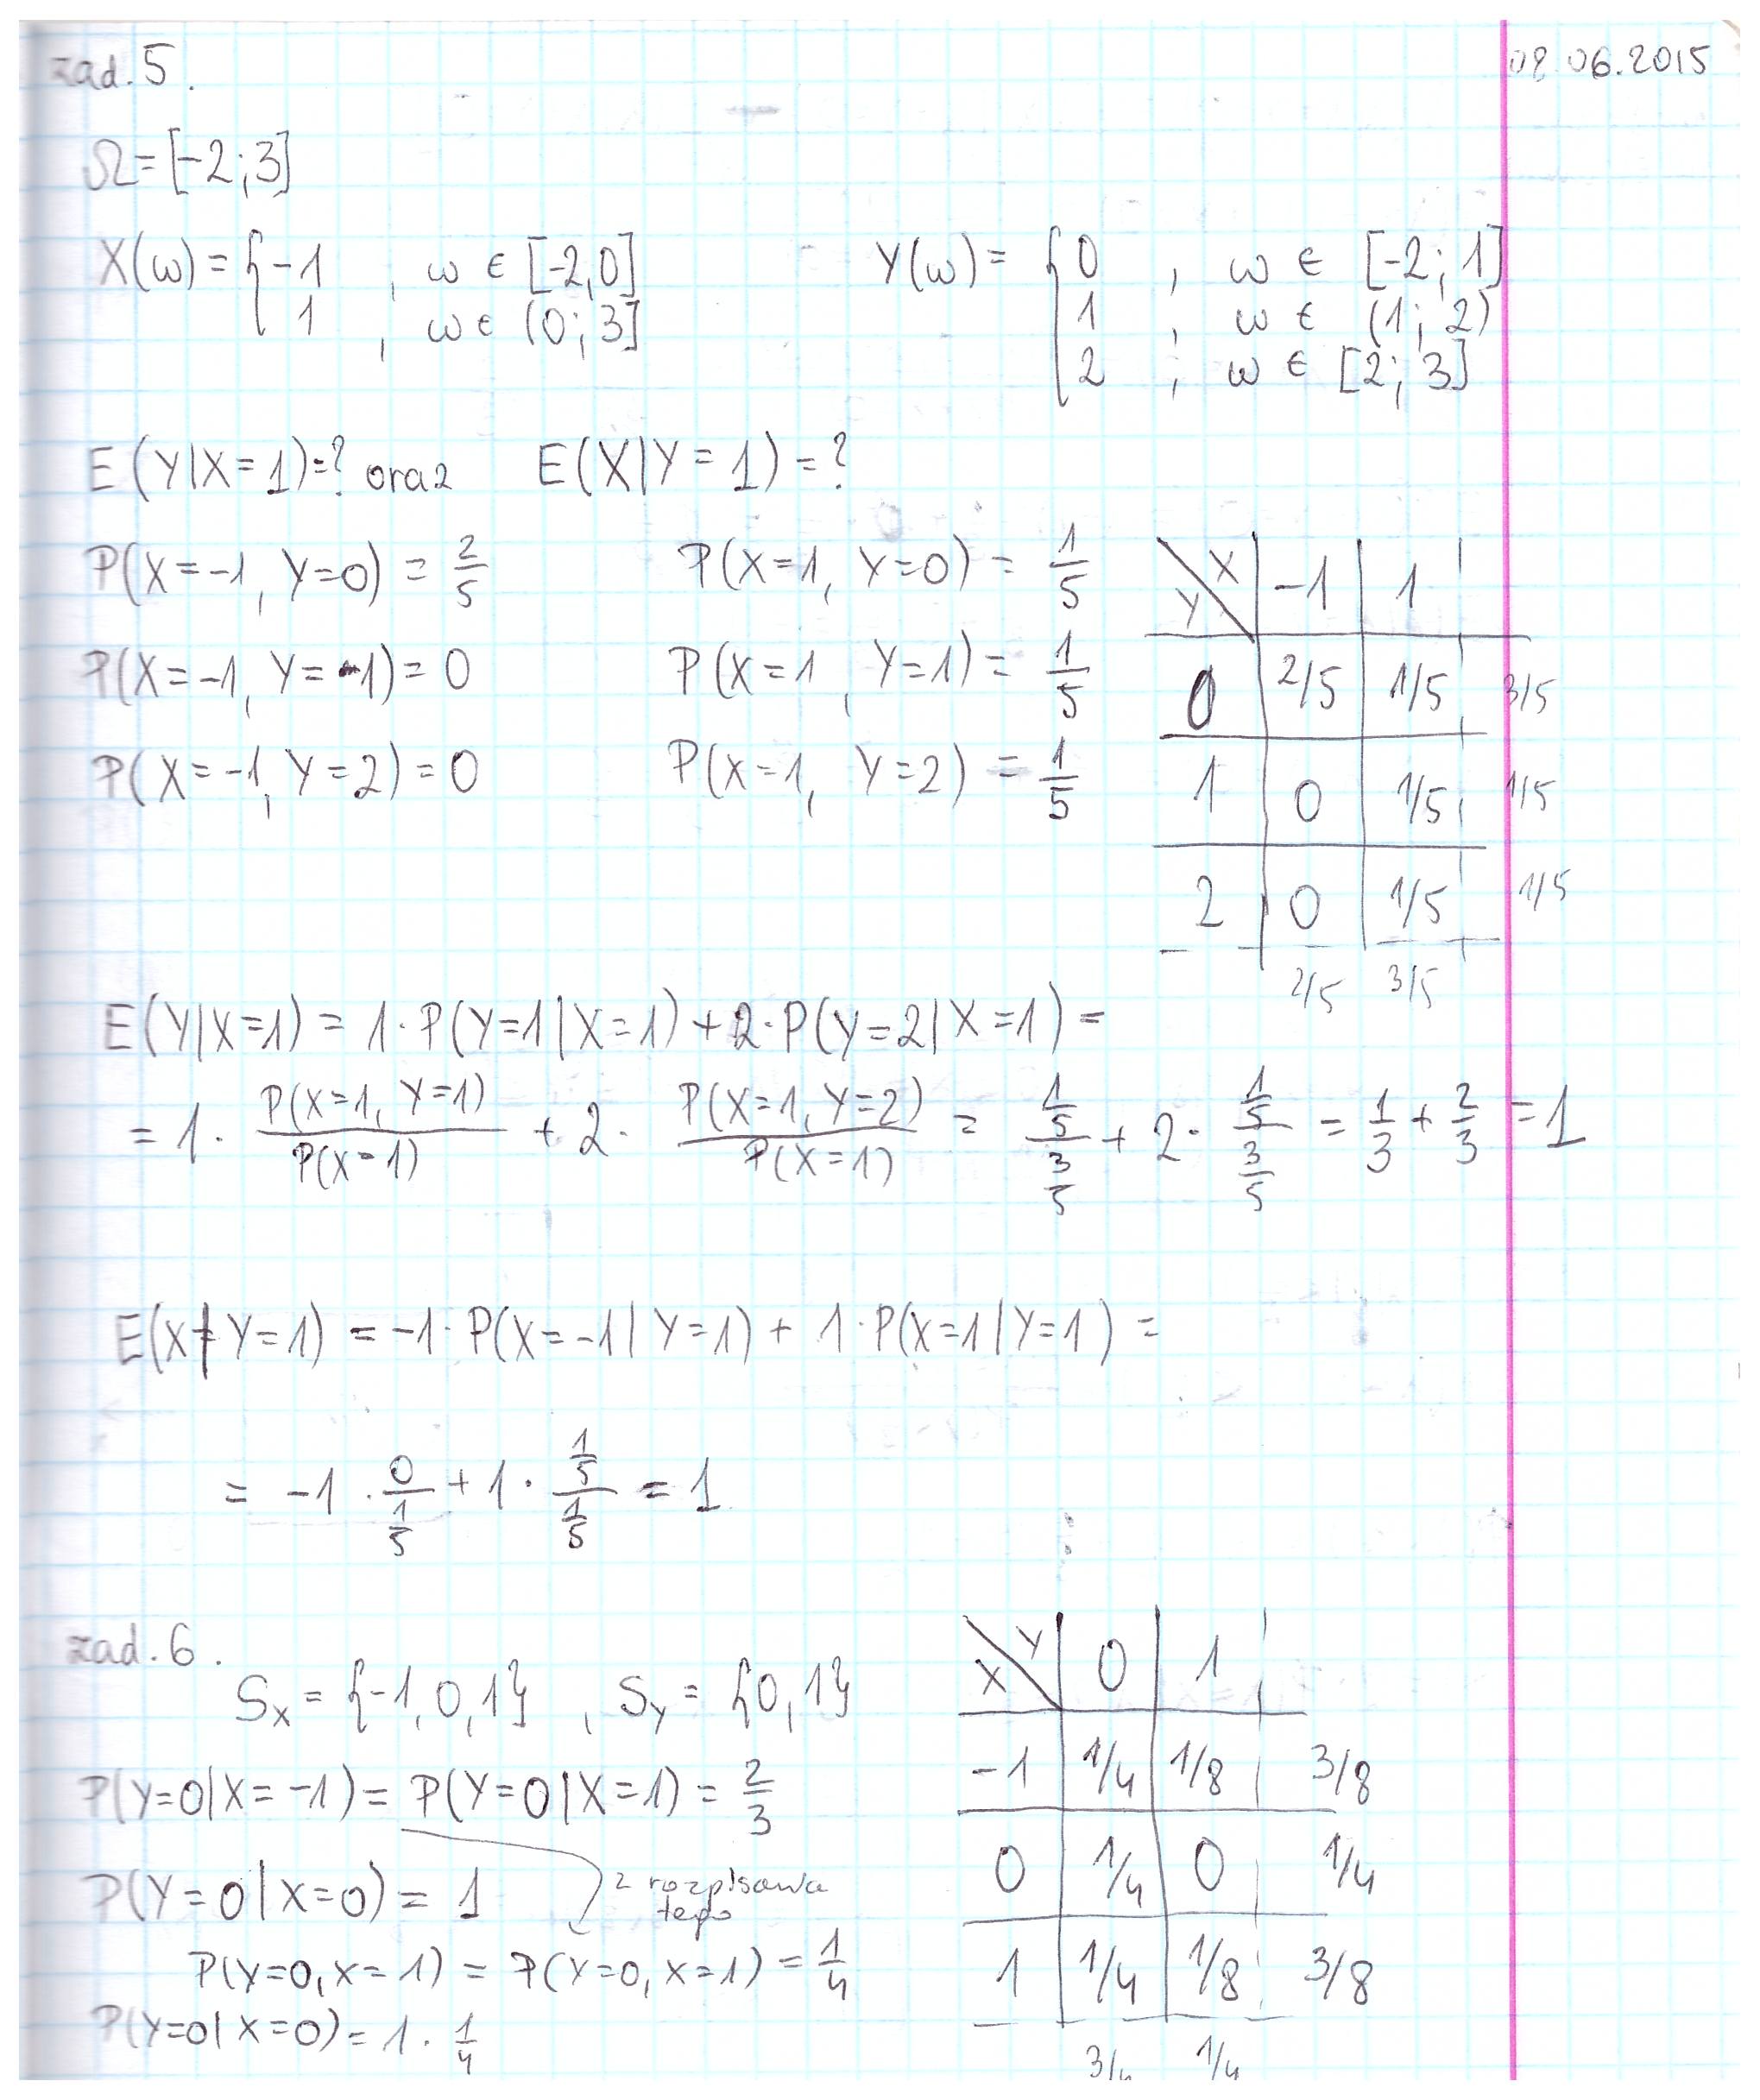 zad. 5.
08.06.2015
Ω = [-2; 3]
X(ω) = { -1 , ω ∈ [-2,0]
1 , ω ∈ (0; 3]
Y(ω) = { 0 , ω ∈ [-2; 1]
1 , ω ∈ (1; 2)
2 , ω ∈ [2; 3]
E(Y|X=1)=? oraz E(X|Y=1)=?
P(X=-1, Y=0) = 2/5 P(X=1, Y=0) = 1/5
P(X=-1, Y=1) = 0 P(X=1, Y=1) = 1/5
P(X=-1, Y=2) = 0 P(X=1, Y=2) = 1/5
Y\X | -1 | 1
0 | 2/5 | 1/5 | 3/5
1 | 0 | 1/5 | 1/5
2 | 0 | 1/5 | 1/5
2/5 3/5
E(Y|X=1) = 1·P(Y=1|X=1) + 2·P(Y=2|X=1) =
= 1 · P(X=1, Y=1)/P(X=1) + 2 · P(X=1, Y=2)/P(X=1) = (1/5)/(3/5) + 2 · (1/5)/(3/5) = 1/3 + 2/3 = 1
E(X|Y=1) = -1·P(X=-1|Y=1) + 1·P(X=1|Y=1) =
= -1 · 0/(1/5) + 1 · (1/5)/(1/5) = 1
zad. 6.
S_X = {-1, 0, 1} , S_Y = {0, 1}
P(Y=0|X=-1) = P(Y=0|X=1) = 2/3
P(Y=0|X=0) = 1
z rozpisania
tego
P(Y=0, X=1) = P(Y=0, X=1) = 1/4
P(Y=0|X=0) = 1 · 1/4
X\Y | 0 | 1
-1 | 1/4 | 1/8 | 3/8
0 | 1/4 | 0 | 1/4
1 | 1/4 | 1/8 | 3/8
3/4 1/4